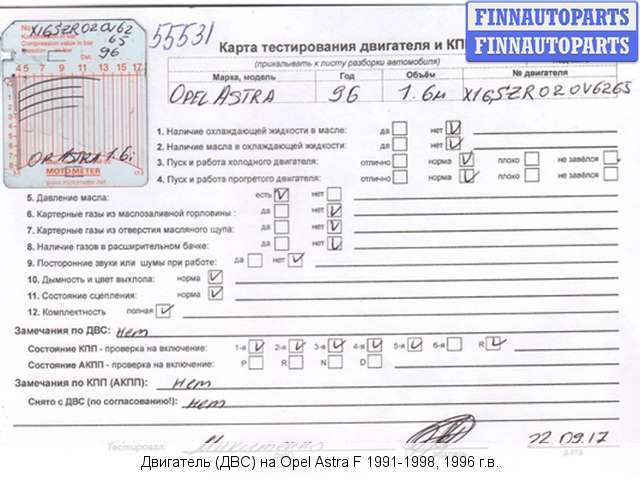 FINNAUTOPARTS
FINNAUTOPARTS
X16SZR020V62
65
96
Compression value in bar
45 7 9 11 13 15 17
OP. ASTRA 1.6i
MOTOMETER
www.motometer.net
55531
Карта тестирования двигателя и КПП
(прикалывать к листу разборки автомобиля)
Марка, модель Год Объём № двигателя
OPEL ASTRA 96 1.6и X16SZR020V6265
1. Наличие охлаждающей жидкости в масле: да нет V
2. Наличие масла в охлаждающей жидкости: да нет V
3. Пуск и работа холодного двигателя: отлично норма V плохо не завёлся
4. Пуск и работа прогретого двигателя: отлично норма V плохо не завёлся
5. Давление масла: есть V нет
6. Картерные газы из маслозаливной горловины: да нет V
7. Картерные газы из отверстия масляного щупа: да нет V
8. Наличие газов в расширительном бачке: да нет V
9. Посторонние звуки или шумы при работе: да нет V
10. Дымность и цвет выхлопа: норма V
11. Состояние сцепления: норма V
12. Комплектность полная V
Замечания по ДВС: нет
Состояние КПП - проверка на включение: 1-я V 2-я V 3-я V 4-я V 5-я V 6-я R V
Состояние АКПП - проверка на включение: P R N D
Замечания по КПП (АКПП): нет
Снято с ДВС (по согласованию!): нет
Тестировал: Микитенко 22.09.17
дата
Двигатель (ДВС) на Opel Astra F 1991-1998, 1996 г.в.